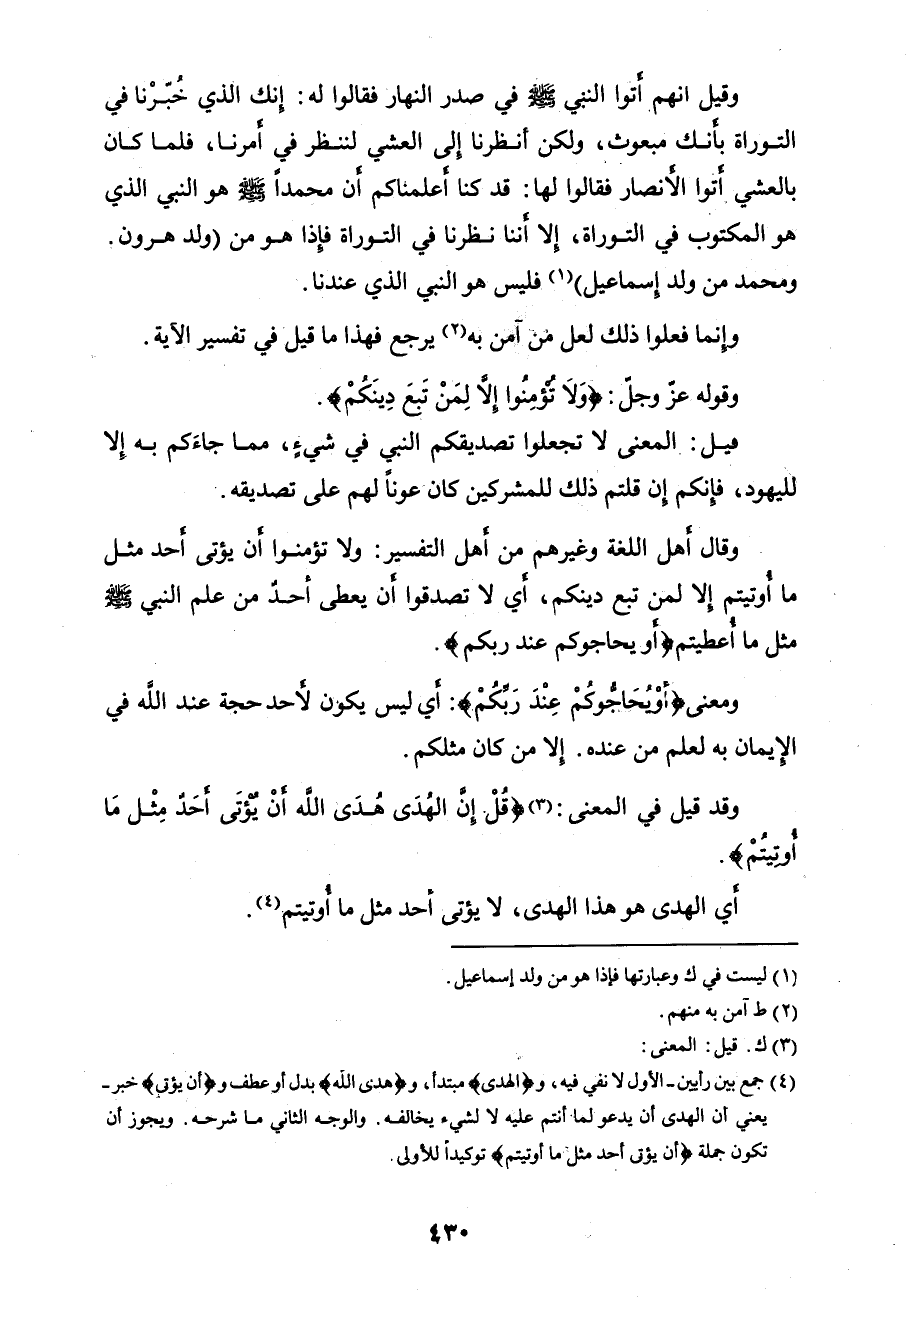 وقيل انهم أَتوا النبي ﷺ في صدر النهار فقالوا له: إنك الذي خُبِّرْنا في
التوراة بأَنك مبعوث، ولكن أنظرنا إلى العشي لننظر في أمرنا، فلما كان
بالعشي أَتوا الأَنصار فقالوا لها: قد كنا أَعلمناكم أَن محمداً ﷺ هو النبي الذي
هو المكتوب في التوراة، إلا أَننا نظرنا في التوراة فإذا هو من (ولد هرون.
ومحمد من ولد إسماعيل)(١) فليس هو النبي الذي عندنا.
وإنما فعلوا ذلك لعل مَن آمن به(٢) يرجع فهذا ما قيل في تفسير الآية.
وقوله عزّ وجلّ: ﴿وَلَا تُؤْمِنُوا إِلَّا لِمَنْ تَبِعَ دِينَكُمْ﴾.
قيل: المعنى لا تجعلوا تصديقكم النبي في شيءٍ، مما جاءَكم به إلا
لليهود، فإنكم إن قلتم ذلك للمشركين كان عوناً لهم على تصديقه.
وقال أَهل اللغة وغيرهم من أَهل التفسير: ولا تؤمنوا أَن يؤتى أحد مثل
ما أُوتيتم إلا لمن تبع دينكم، أي لا تصدقوا أَن يعطى أحدٌ من علم النبي ﷺ
مثل ما أُعطيتم ﴿أَو يحاجوكم عند ربكم﴾.
ومعنى ﴿أَوْ يُحَاجُّوكُمْ عِنْدَ رَبِّكُمْ﴾: أَي ليس يكون لأَحد حجة عند اللَّه في
الإيمان به لعلم من عنده. إلا من كان مثلكم.
وقد قيل في المعنى:(٣) ﴿قُلْ إِنَّ الهُدَى هُدَى اللَّه أَنْ يُؤْتَى أَحَدٌ مِثْل مَا
أُوتِيتُمْ﴾.
أَي الهدى هو هذا الهدى، لا يؤتى أحد مثل ما أُوتيتم(٤).
(١) ليست في ك وعبارتها فإذا هو من ولد إسماعيل.
(٢) ط آمن به منهم.
(٣) ك. قيل: المعنى:
(٤) جمع بين رأيين - الأول لا نفي فيه، و﴿الهدى﴾ مبتدأ، و﴿هدى الله﴾ بدل أو عطف و﴿أن يؤتى﴾ خبر -
يعني أن الهدى أن يدعو لما أنتم عليه لا لشيء يخالفه. والوجه الثاني ما شرحه. ويجوز أن
تكون جملة ﴿أن يؤتى أحد مثل ما أوتيتم﴾ توكيداً للأولى.
٤٣٠